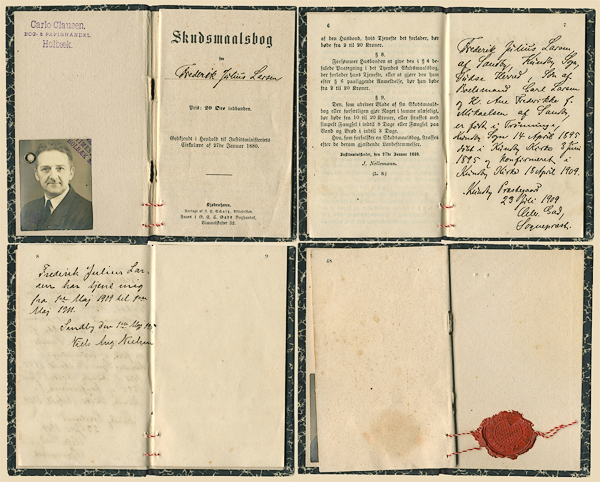 Carlo Clausen.
BOG- & PAPIRHANDEL
Holbæk.
Skudsmaalsbog
for
Frederik Julius Larsen
Pris: 20 Øre indbunden.
Godkendt i Henhold til Justitsministeriets
Cirkulære af 27de Januar 1880.
Kjøbenhavn.
6
7
af den Husbond, hvis Tjeneste det forlader, bør
bøde fra 2 til 20 Kroner.
§ 8.
Forsømmer Husbonden at give den i § 4 be-
falede Paategning i det Tyendes Skudsmaalsbog,
der forlader hans Tjeneste, eller at gjøre den ham
efter § 6 paaliggende Anmeldelse, bør han bøde
fra 2 til 20 Kroner.
§ 9.
Den, som udriver Blade af sin Skudsmaals-
bog eller forfærdigen gjør Noget i samme ulæseligt,
bør bøde fra 10 til 20 Kroner, eller straffes med
simpelt Fængsel i indtil 8 Dage eller Fængsel paa
Vand og Brød i indtil 2 Dage.
Den, som forfalsker en Skudsmaalsbog, straffes
efter de derom gjældende Lovbestemmelser.
Justitsministeriet, den 27de Januar 1880.
J. Nellemann.
(L. S.)
Frederik Julius Larsen
af Sandby, Kundby Sogn,
Tudse Herred, Søn af
Bodelsmand Carl Larsen
og H. Ane Fredrikke f.
Mikaelsen af Sandby
er født i
Kundby Sogn 14 April 1895
døbt i Kundby Kirke 3 Juni
1895 og konfirmeret i
Kundby Kirke 18 April 1909.
Kundby Præstegaard
23 Juli 1909
Sognepræst.
8
9
Frederik Julius Lar-
sen har tjent mig
fra 1ste Maj 1909 til 1ste
Maj 1911.
Sandby den 1ste Maj
Niels Aug. Nielsen
48